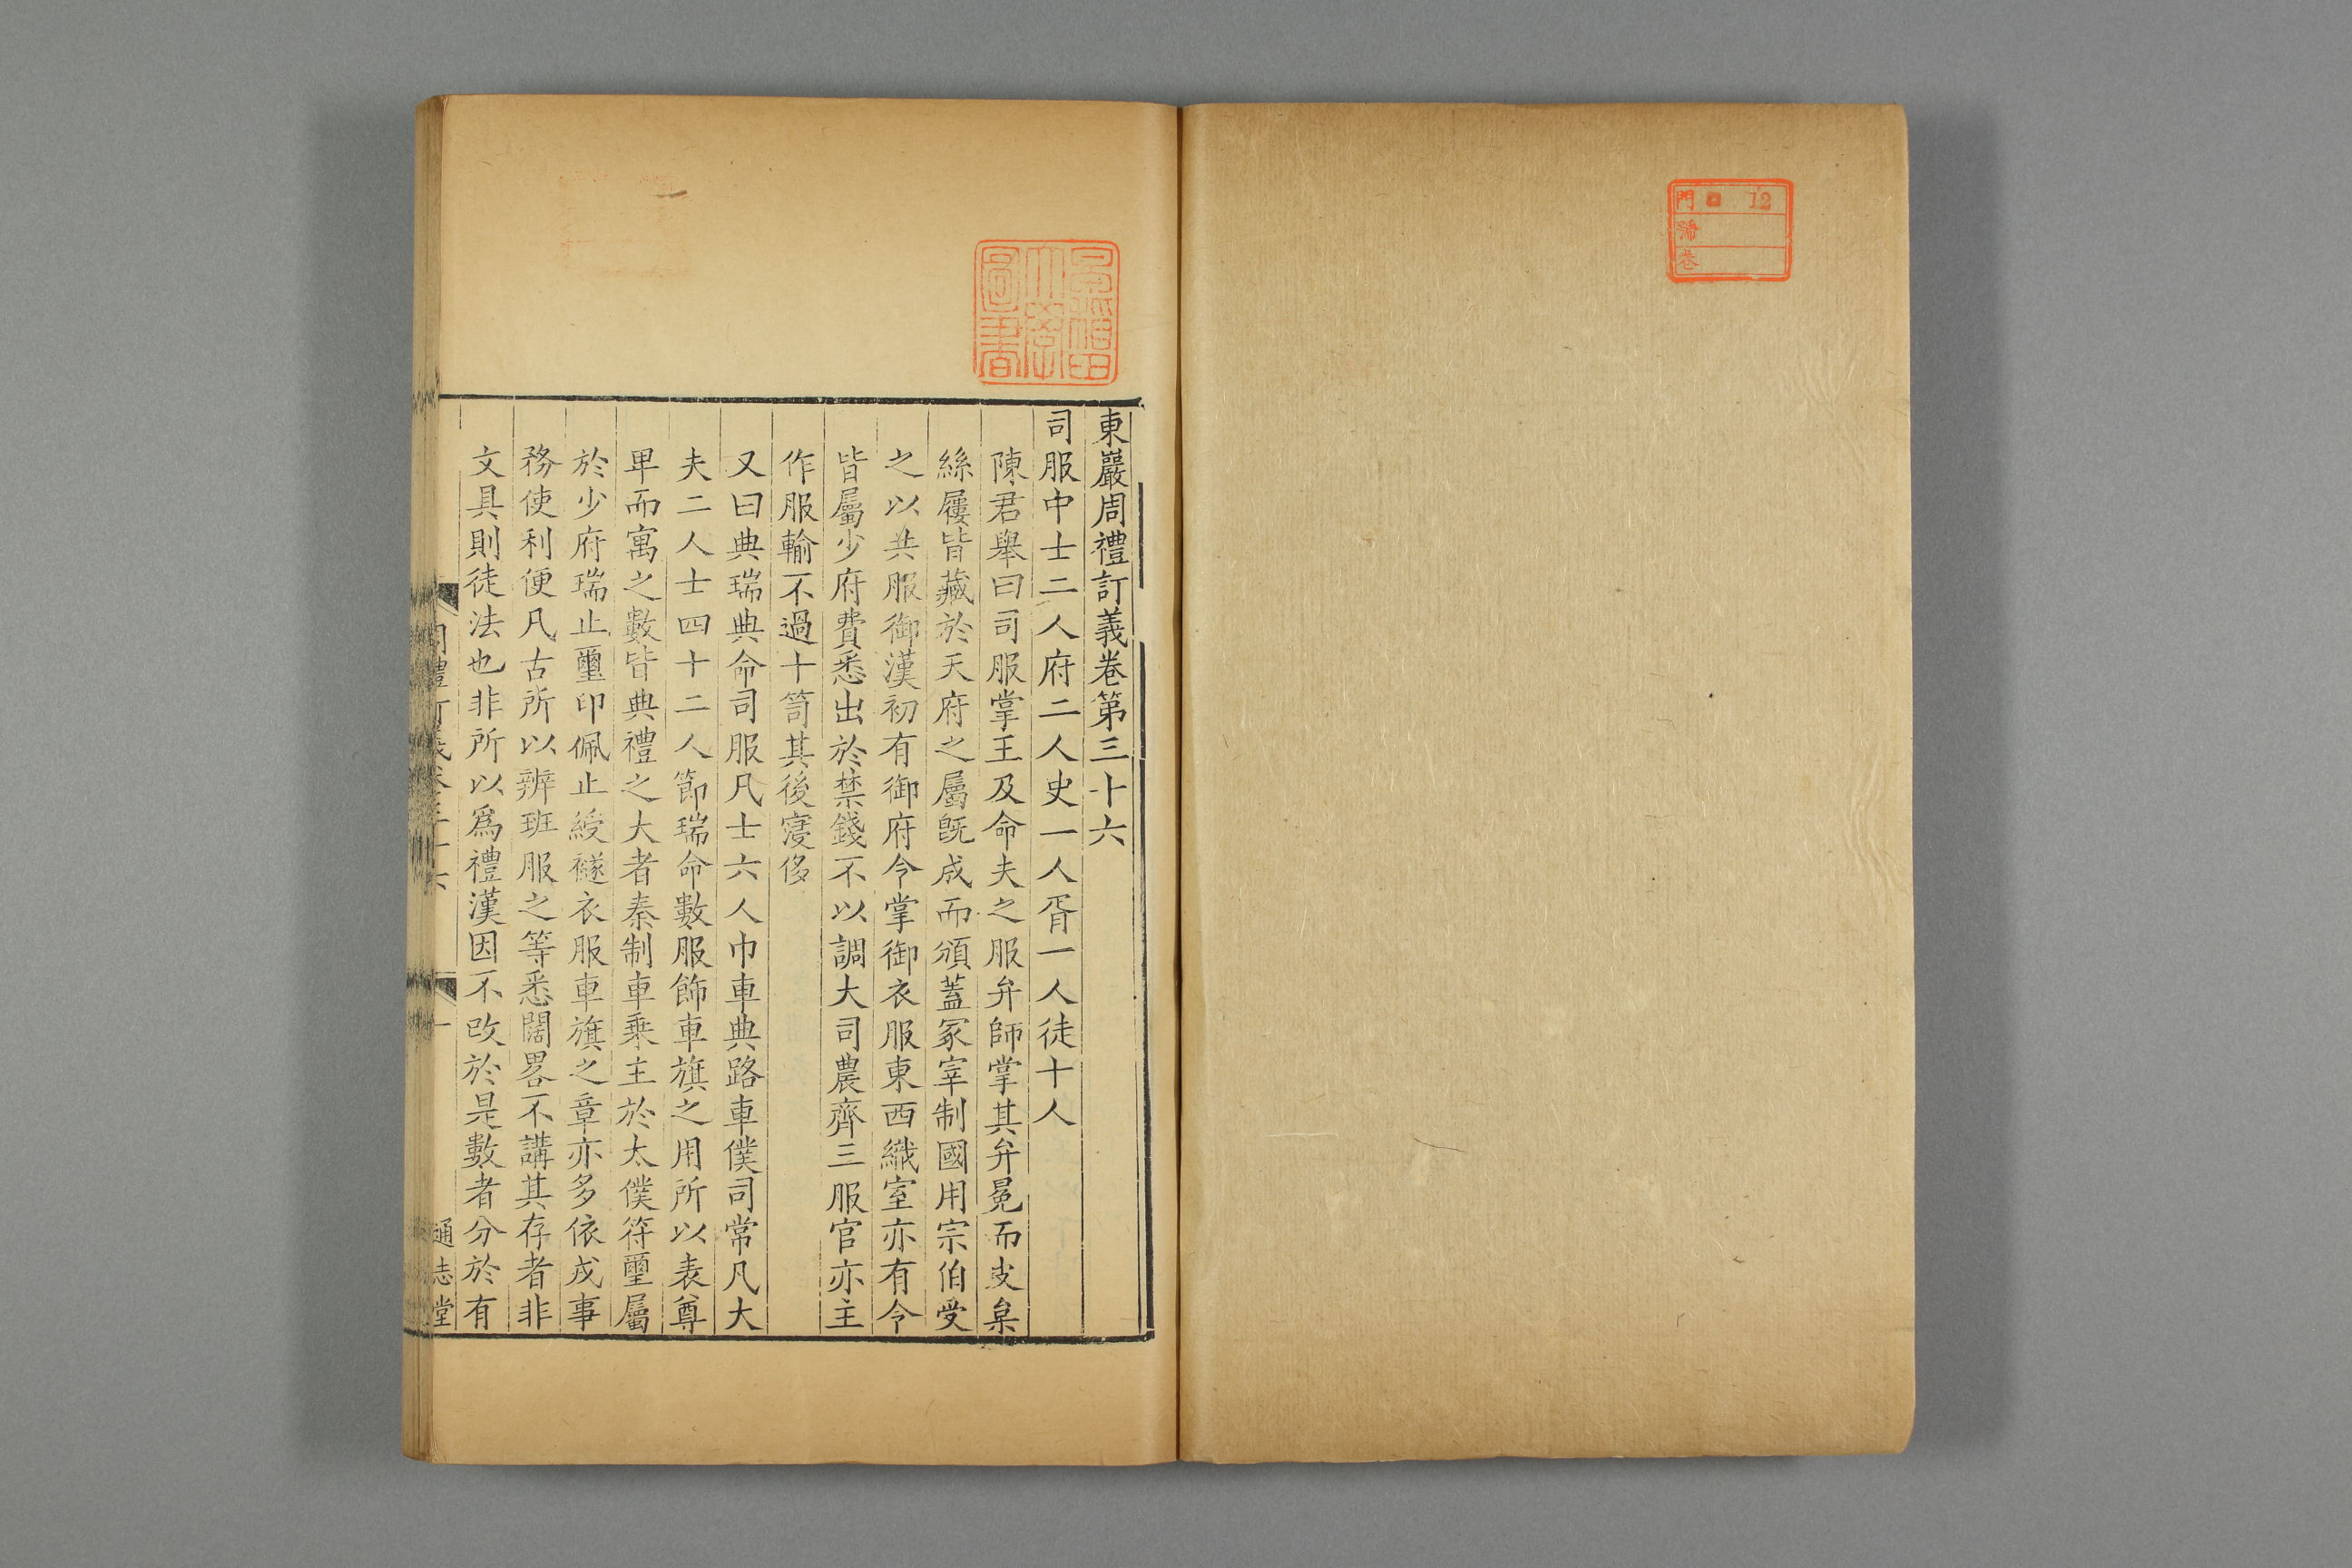 門 12
號
卷
圖書
東巖周禮訂義卷第三十六
司服中士二人府二人史一人胥一人徒十人
陳君舉曰司服掌王及命夫之服弁師掌其弁冕而攴枲
絲屨皆藏於天府之屬旣成而頒蓋冢宰制國用宗伯受
之以共服御漢初有御府令掌御衣服東西織室亦有令
皆屬少府費悉出於禁錢不以調大司農齊三服官亦主
作服輸不過十笥其後寖侈
又曰典瑞典命司服凡士六人巾車典路車僕司常凡大
夫二人士四十二人節瑞命數服飾車旗之用所以表尊
卑而寓之數皆典禮之大者秦制車乘主於太僕符璽屬
於少府瑞止璽印佩止綬襚衣服車旗之章亦多依戎事
務使利便凡古所以辨班服之等悉闊畧不講其存者非
文具則徒法也非所以爲禮漢因不改於是數者分於有
周禮訂義卷三十六 一 通志堂